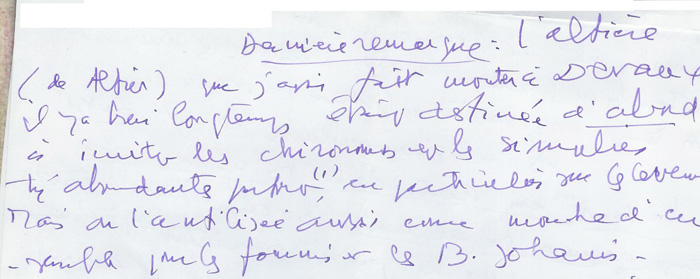 Dernière remarque : l'altière
(de Altier) que j'avais fait monter à DEVAUX
il y a bien longtemps était destinée d'abord
à imiter les chironomes et les simulies
très abondantes (1), en particulier sur le
Mais on l'a utilisée aussi comme mouche d'en
-semble pour les fourmis et les B.